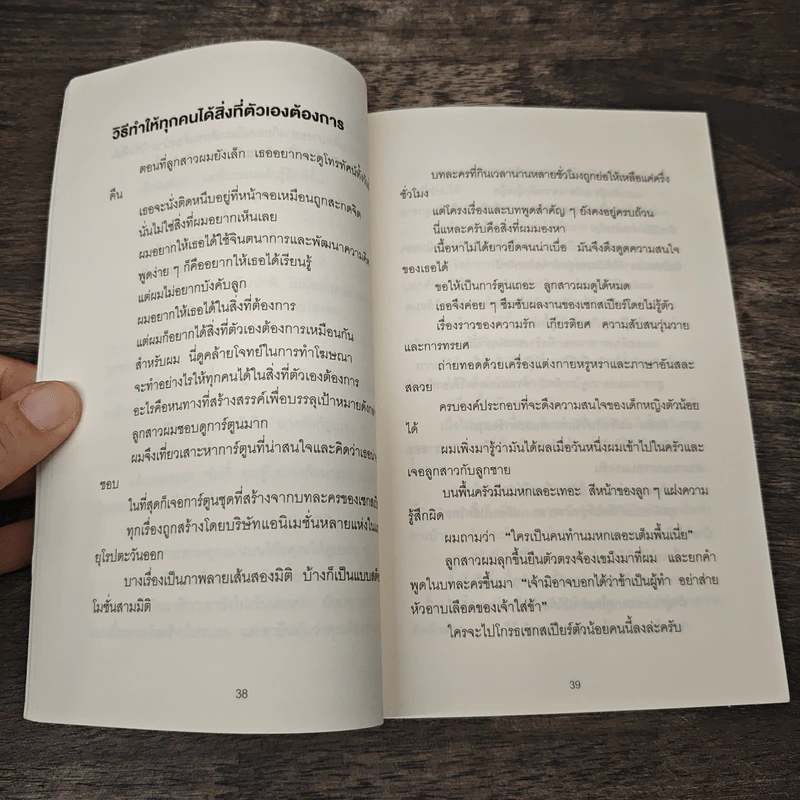 วิธีทำให้ทุกคนได้สิ่งที่ตัวเองต้องการ
ตอนที่ลูกสาวผมยังเล็ก เธออยากจะดูโทรทัศน์ทั้งวันทั้ง
คืน
เธอจะนั่งติดหนึบอยู่ที่หน้าจอเหมือนถูกสะกดจิต
นั่นไม่ใช่สิ่งที่ผมอยากเห็นเลย
ผมอยากให้เธอได้ใช้จินตนาการและพัฒนาความคิด
พูดง่าย ๆ ก็คืออยากให้เธอได้เรียนรู้
แต่ผมไม่อยากบังคับลูก
ผมอยากให้เธอได้ในสิ่งที่ต้องการ
แต่ผมก็อยากได้สิ่งที่ตัวเองต้องการเหมือนกัน
สำหรับผม นี่ดูคล้ายโจทย์ในการทำโฆษณา
จะทำอย่างไรให้ทุกคนได้ในสิ่งที่ตัวเองต้องการ
อะไรคือหนทางที่สร้างสรรค์เพื่อบรรลุเป้าหมาย
ลูกสาวผมชอบดูการ์ตูนมาก
ผมจึงเที่ยวเสาะหาการ์ตูนที่น่าสนใจและคิดว่าเธอ
ชอบ
ในที่สุดก็เจอการ์ตูนชุดที่สร้างจากบทละครของ
ทุกเรื่องถูกสร้างโดยบริษัทแอนิเมชั่นหลายแห่งใน
ยุโรปตะวันออก
บางเรื่องเป็นภาพลายเส้นสองมิติ บ้างก็เป็นแบบ
โมชั่นสามมิติ
38
บทละครที่กินเวลานานหลายชั่วโมงถูกย่อให้เหลือแค่ครึ่ง
ชั่วโมง
แต่โครงเรื่องและบทพูดสำคัญ ๆ ยังคงอยู่ครบถ้วน
นี่แหละครับคือสิ่งที่ผมมองหา
เนื้อหาไม่ได้ยาวยืดจนน่าเบื่อ มันจึงดึงดูดความสนใจ
ของเธอได้
ขอให้เป็นการ์ตูนเถอะ ลูกสาวผมดูได้หมด
เธอจึงค่อย ๆ ซึมซับผลงานของเชกสเปียร์โดยไม่รู้ตัว
เรื่องราวของความรัก เกียรติยศ ความสับสนวุ่นวาย
และการทรยศ
ถ่ายทอดด้วยเครื่องแต่งกายหรูหราและภาษาอันสละ
สลวย
ครบองค์ประกอบที่จะดึงความสนใจของเด็กหญิงตัวน้อย
ได้
ผมเพิ่งมารู้ว่ามันได้ผลเมื่อวันหนึ่งผมเข้าไปในครัวและ
เจอลูกสาวกับลูกชาย
บนพื้นครัวมีนมหกเลอะเทอะ สีหน้าของลูก ๆ แฝงความ
รู้สึกผิด
ผมถามว่า “ใครเป็นคนทำนมหกเลอะเต็มพื้นเนี่ย”
ลูกสาวผมลุกขึ้นยืนตัวตรงจ้องเขม็งมาที่ผม และยกคำ
พูดในบทละครขึ้นมา “เจ้ามิอาจบอกได้ว่าข้าเป็นผู้ทำ อย่าส่าย
หัวอาบเลือดของเจ้าใส่ข้า”
ใครจะไปโกรธเชกสเปียร์ตัวน้อยคนนี้ลงล่ะครับ
39